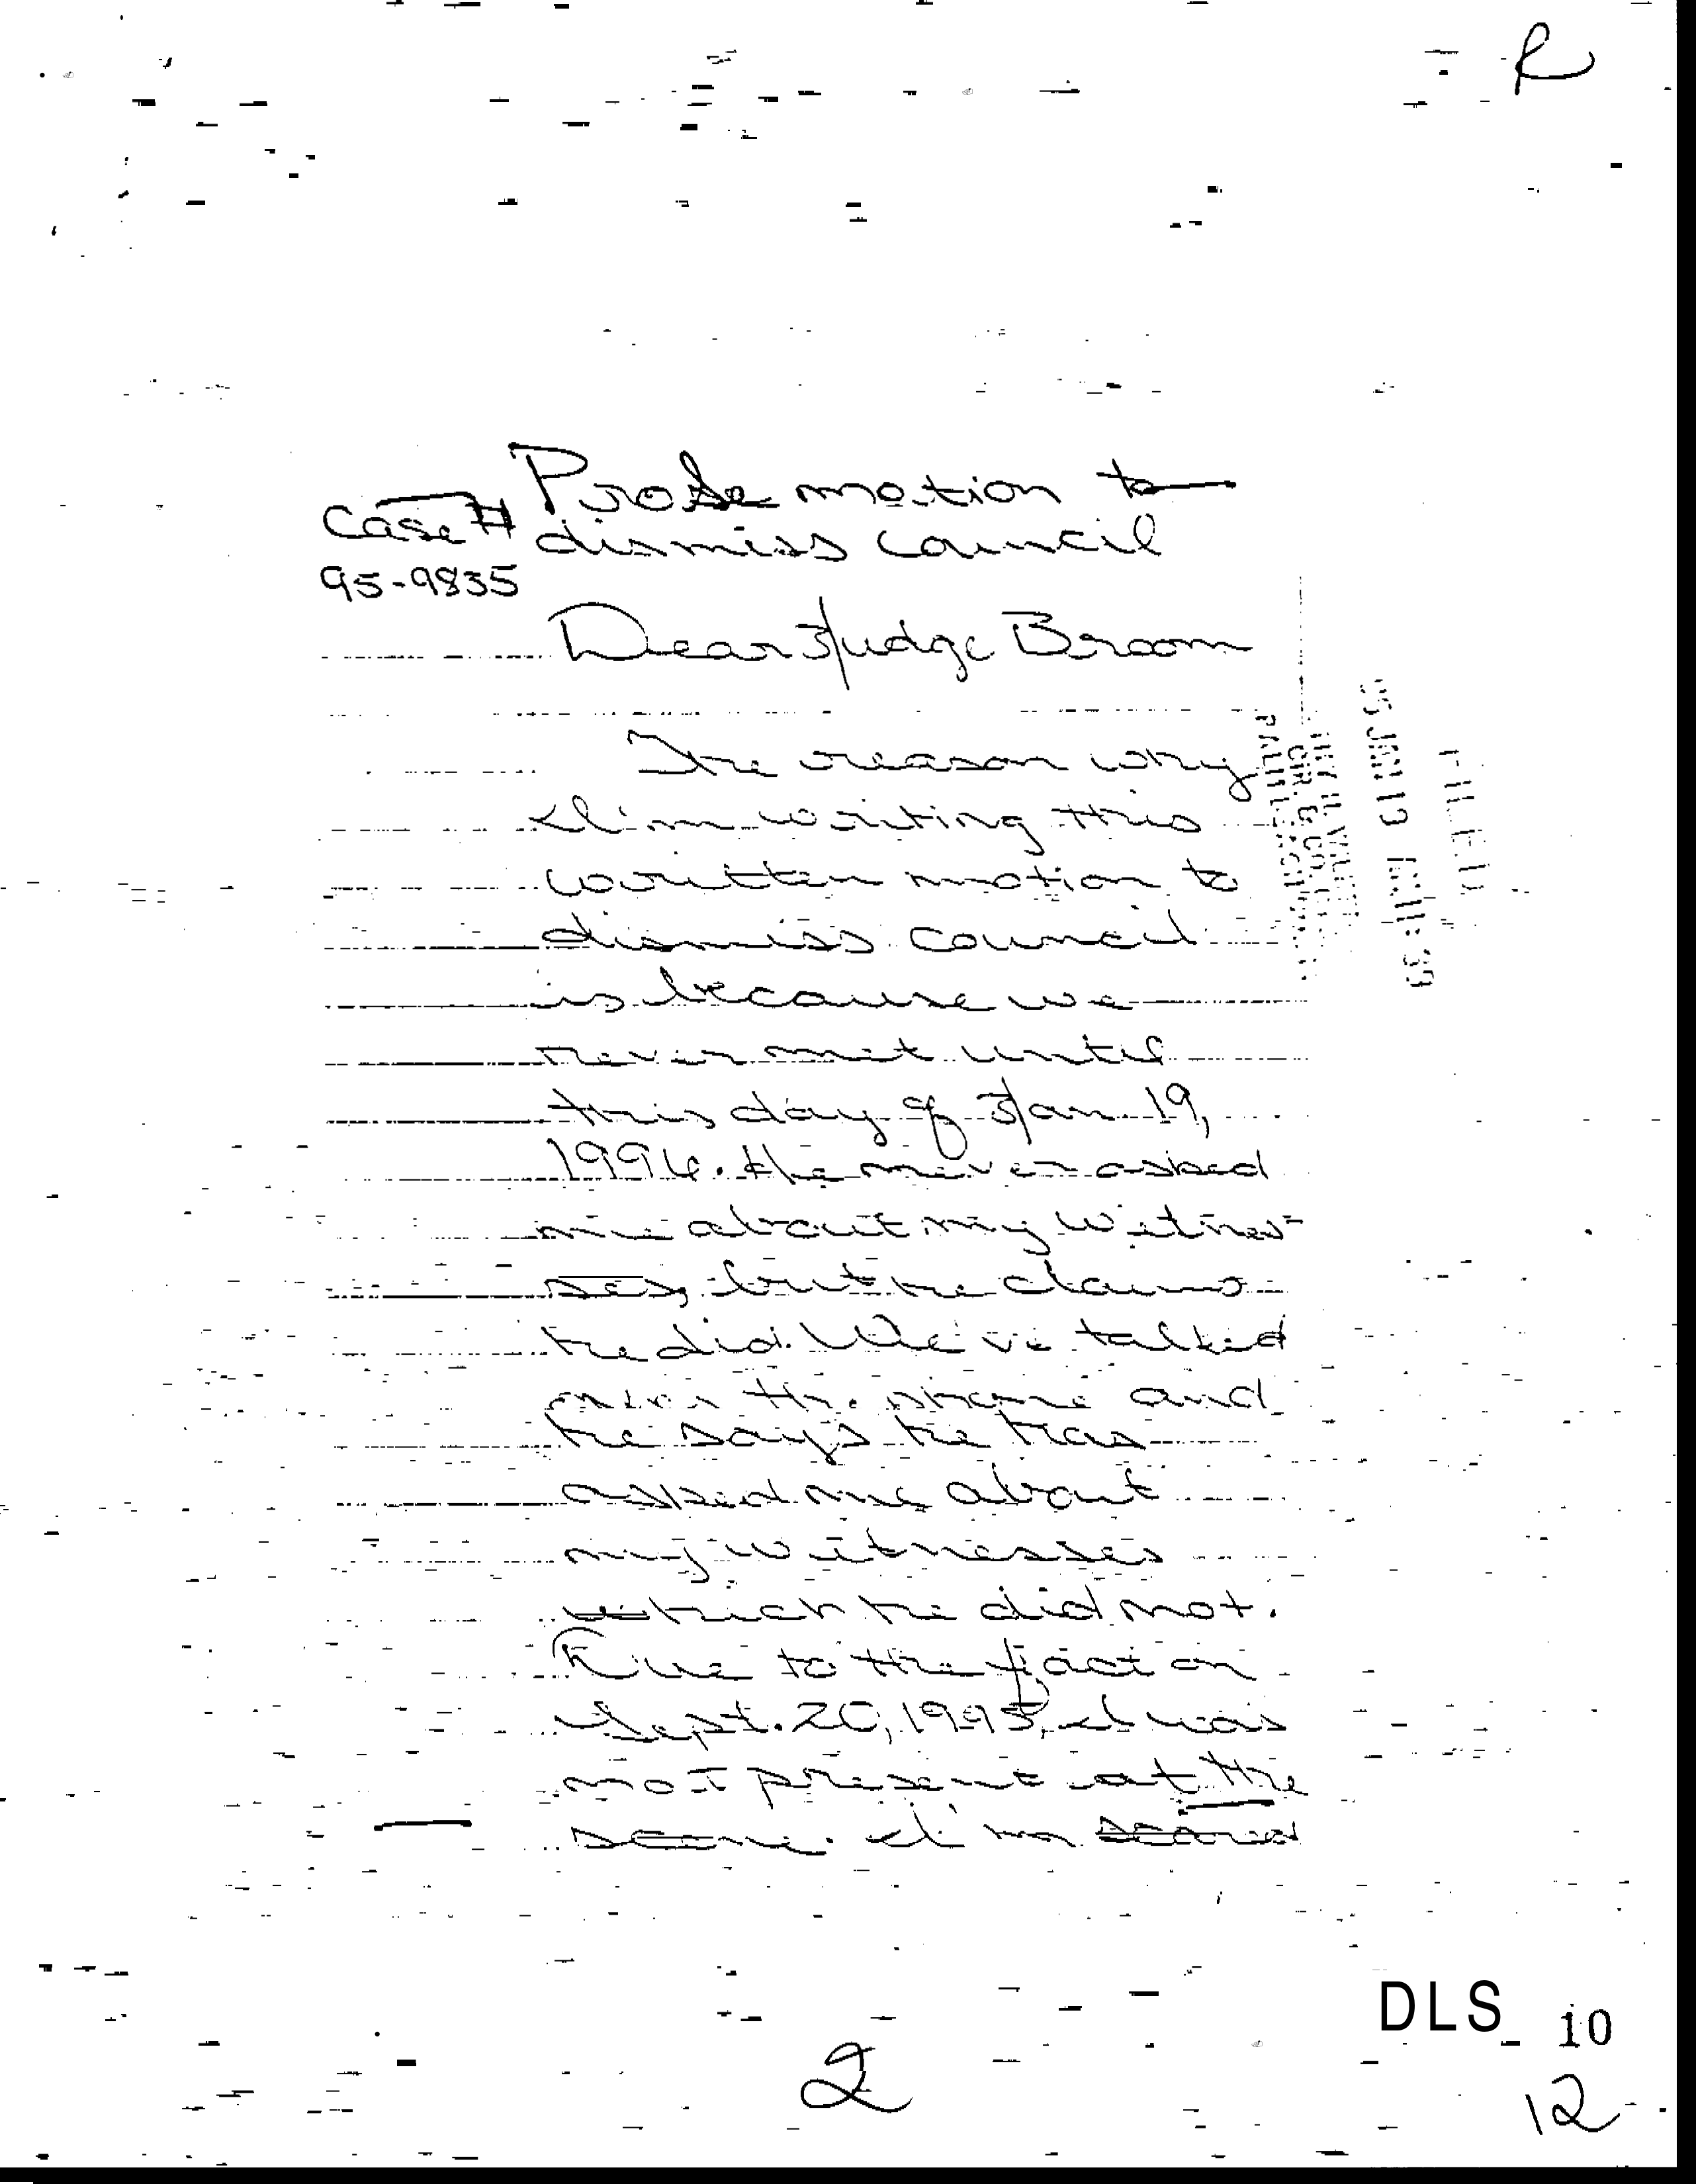 R
Pro Se motion to
Case # dismiss council
95-9835
Dear Judge Broom
The reason why
I'm writing this
written motion to
dismiss council
is because we
never met until
this day of Jan 19,
1996. He never asked
me about my witnes-
ses, but he claims
he did. We've talked
over the phone and
he say's he has
asked me about
my witnesses
which he did not.
Due to the fact on
Sept. 20, 1995, I was
not present at the
scene. I'm scared
FILED
JAN 19
DLS 10
2
12